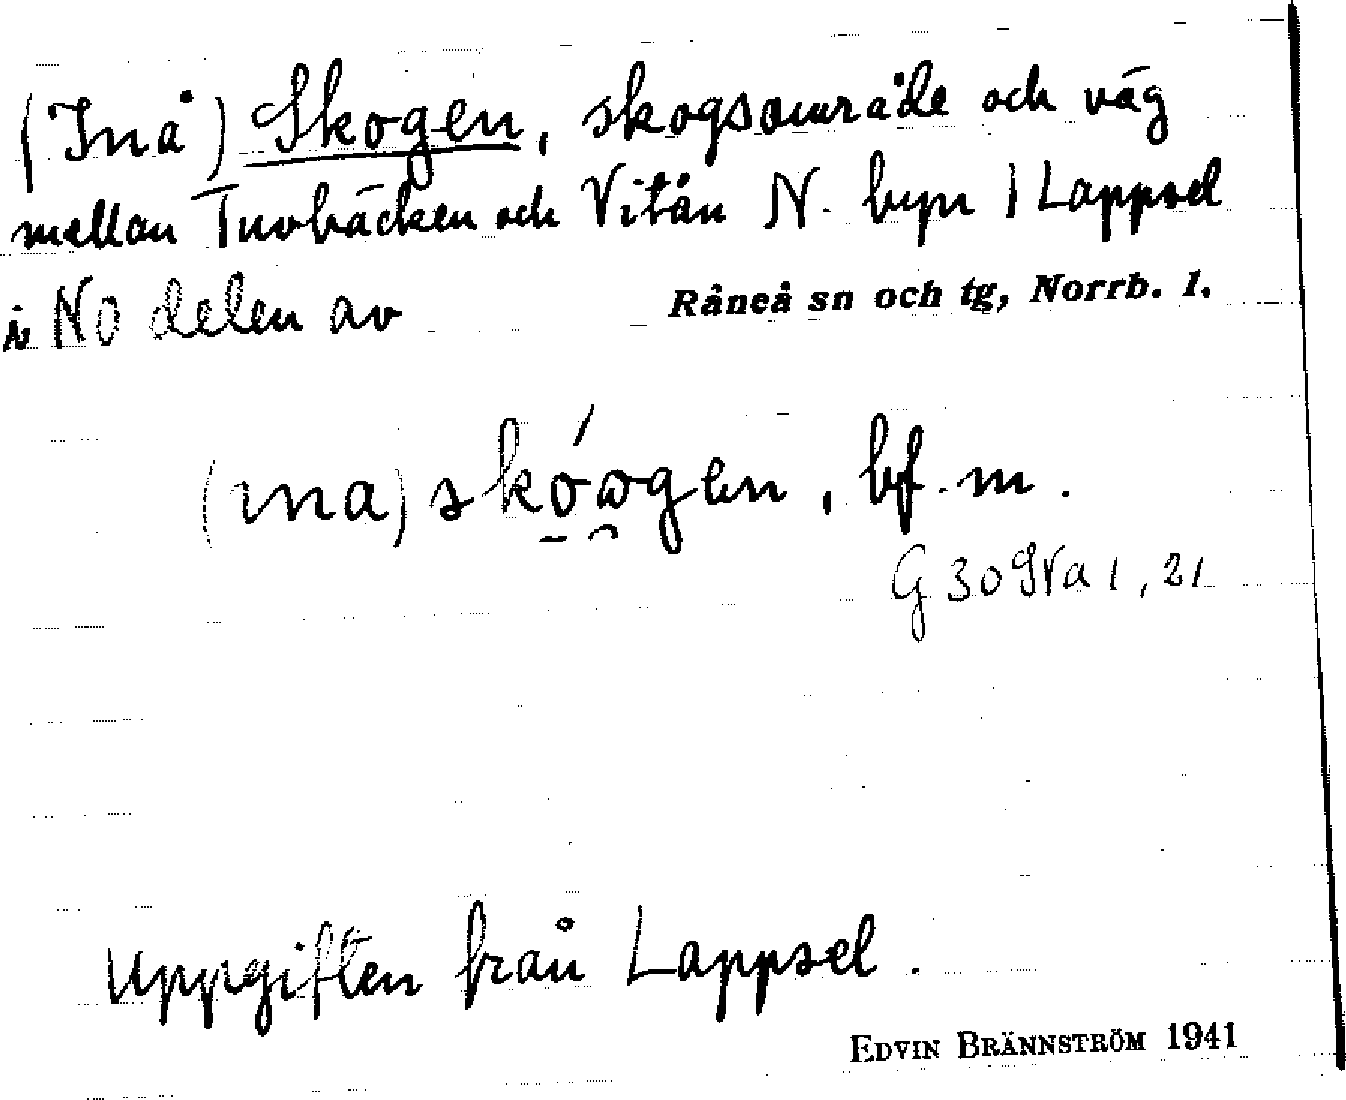 (Inå) Skogen, skogsområde och väg
mellan Tuvbäcken och Vitån N. byn i Lappsel
i NO delen av Råneå sn och tg, Norrb. l.
(ɪna) skóωgen, bf. m.
G 30 9Va 1, 21
Uppgiften från Lappsel.
EDVIN BRÄNNSTRÖM 1941